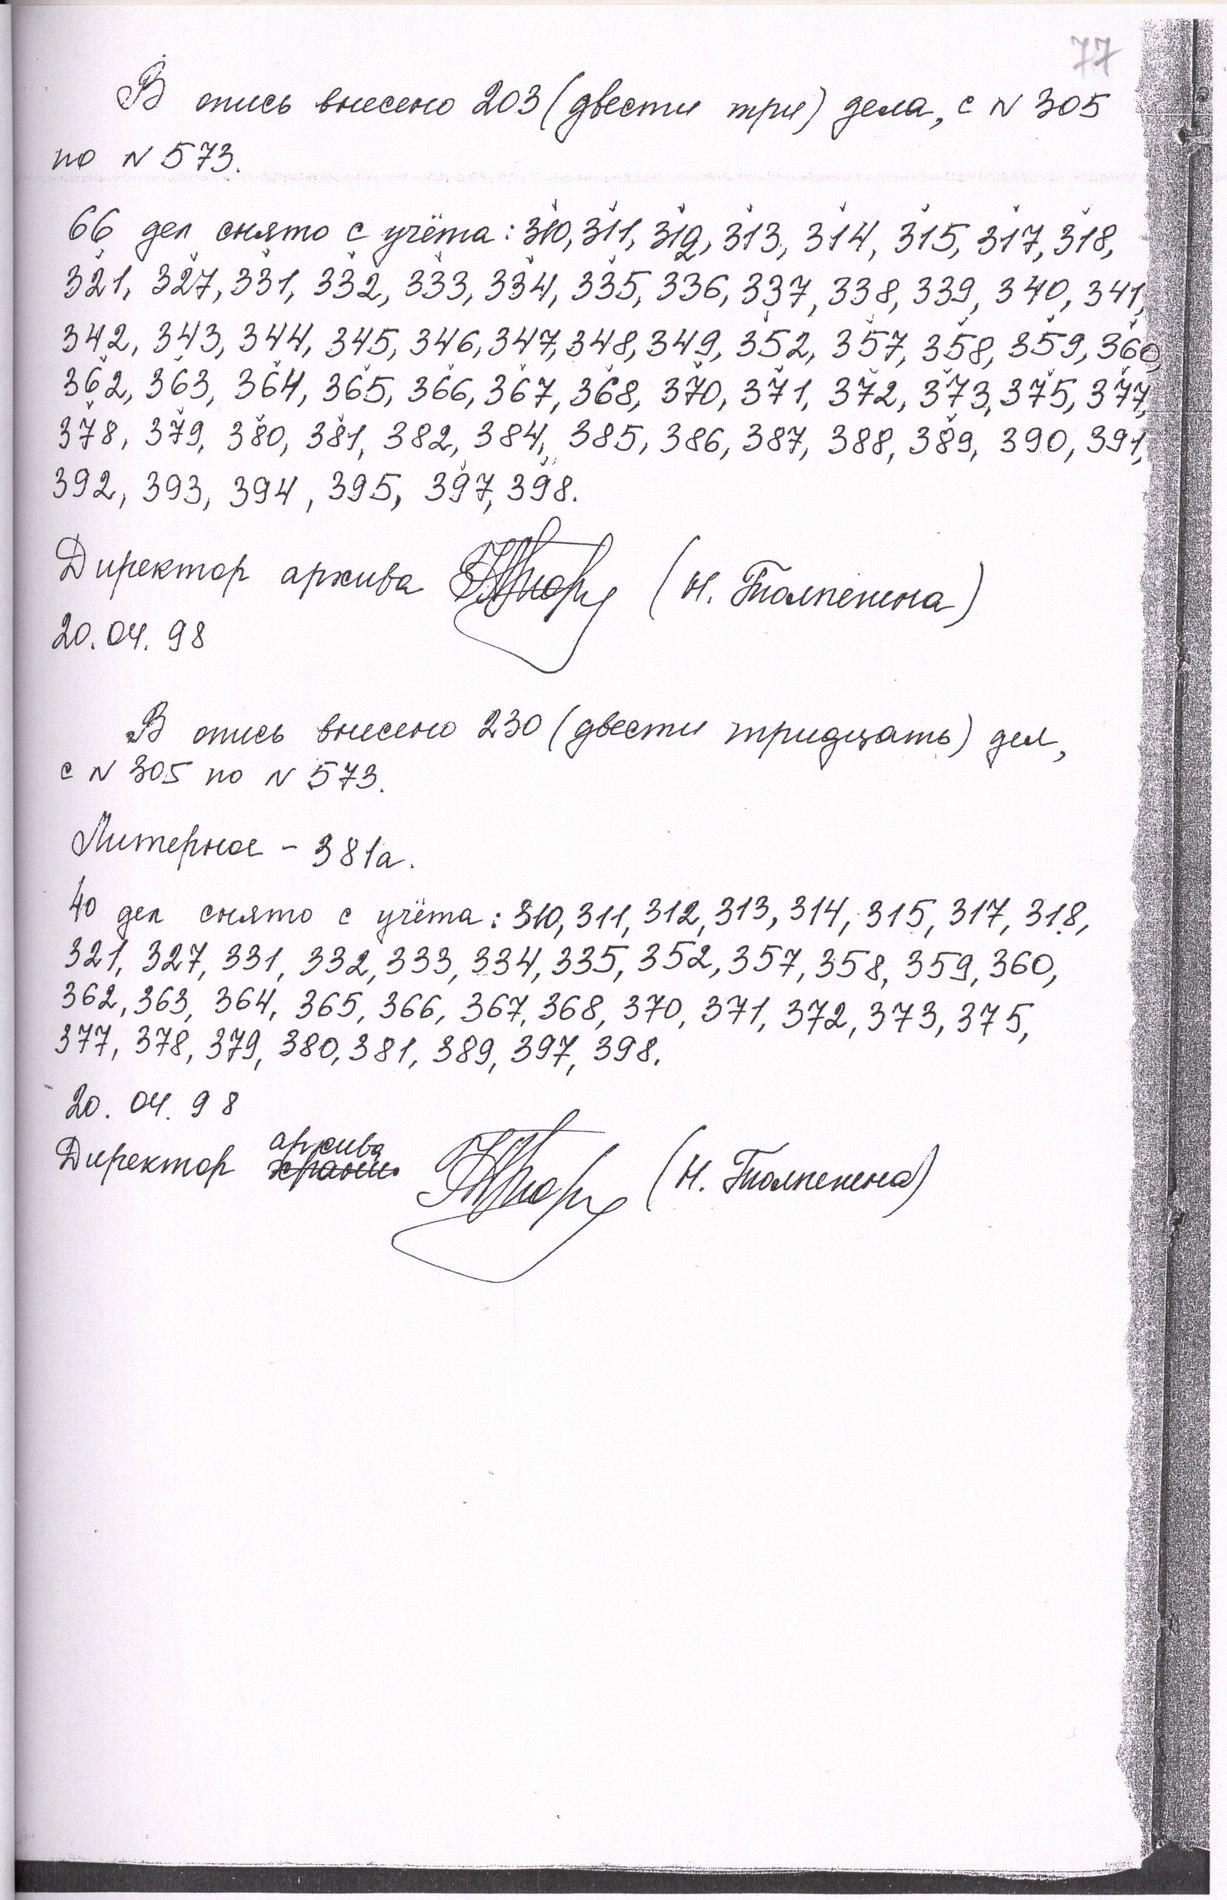 77
В опись внесено 203 (двести три) дела, с N 305
по N 573.
66 дел снято с учёта: 310, 311, 312, 313, 314, 315, 317, 318,
321, 327, 331, 332, 333, 334, 335, 336, 337, 338, 339, 340, 341,
342, 343, 344, 345, 346, 347, 348, 349, 352, 357, 358, 359, 360,
362, 363, 364, 365, 366, 367, 368, 370, 371, 372, 373, 375, 377,
378, 379, 380, 381, 382, 384, 385, 386, 387, 388, 389, 390, 391,
392, 393, 394, 395, 397, 398.
Директор архива (Н. Толпекина)
20.04.98
В опись внесено 230 (двести тридцать) дел,
с N 305 по N 573.
Литерное - 381а.
40 дел снято с учёта: 310, 311, 312, 313, 314, 315, 317, 318,
321, 327, 331, 332, 333, 334, 335, 352, 357, 358, 359, 360,
362, 363, 364, 365, 366, 367, 368, 370, 371, 372, 373, 375,
377, 378, 379, 380, 381, 389, 397, 398.
20.04.98
архива
Директор (Н. Толпекина)